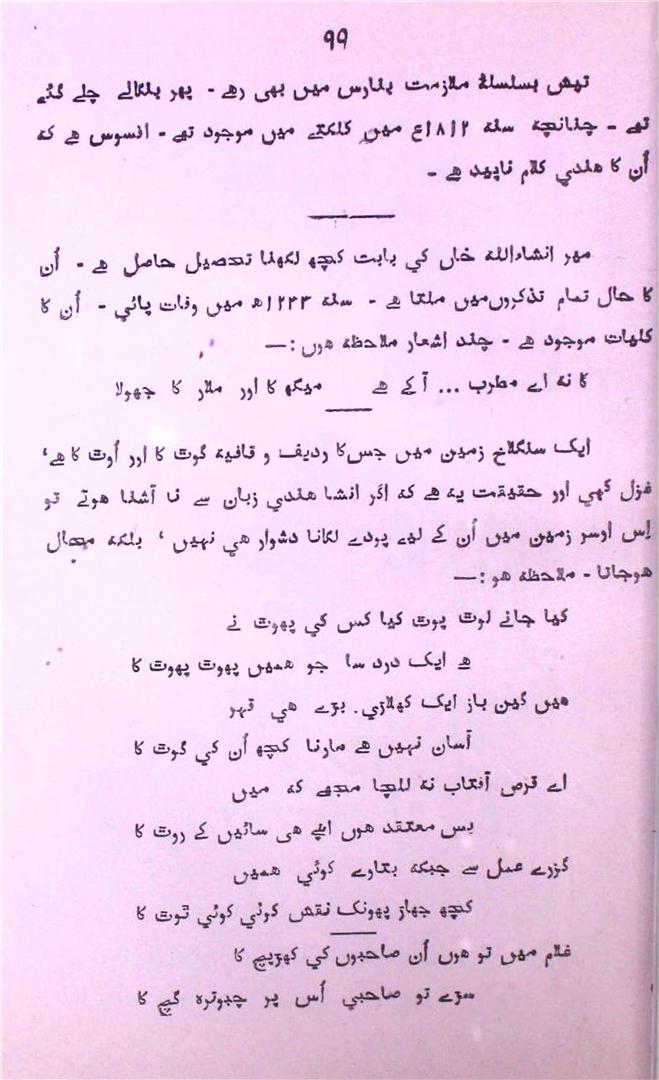 ۹۹
تپش بسلسلۂ ملازمت بنارس میں بھی رہے - پھر بنگالے چلے گئے
تھے - چنانچہ سنہ ۱۸۱۲ع میں کلکتے میں موجود تھے - افسوس ہے کہ
اُن کا ہندی کلام ناپید ہے -
میر انشاءاللہ خاں کی بابت کچھ لکھنا تحصیل حاصل ہے - اُن
کا حال تمام تذکروں میں ملتا ہے - سنہ ۱۲۳۳ھ میں وفات پائی - اُن کا
کلیات موجود ہے - چند اشعار ملاحظہ ہوں :—
گا نہ اے مطرب ... آ کے ہے میگھ کا اور ملار کا جھولا
ایک سنگلاخ زمین میں جس کا ردیف و قافیہ گوٹ کا اور اُوٹ کا ہے،
غزل کہی اور حقیقت یہ ہے کہ اگر انشا ہندی زبان سے نا آشنا ہوتے تو
اِس اوسر زمین میں اُن کے لیے پودے لگانا دشوار ہی نہیں ، بلکہ محال
ہوجاتا - ملاحظہ ہو :—
کیا جانے لوٹ پوٹ کیا کس کی پھوٹ نے
ہے ایک درد سا جو ہمیں پھوٹ پھوٹ کا
ہیں گین باز ایک کھلاڑی . بڑے ہی قہر
آسان نہیں ہے مارنا کچھ اُن کی گوٹ کا
اے قرص آفتاب نہ للچا مجھے کہ میں
بس معتقد ہوں اپنے ہی سائیں کے روٹ کا
گزرے عمل سے جبکہ بتاوے کوئی ہمیں
کچھ جھاڑ پھونک نقش کوئی کوئی ٹوٹ کا
غلام میں تو ہوں اُن صاحبوں کی کھڑپیچ کا
سڑے تو صاحبی اُس پر چبوترہ گچ کا